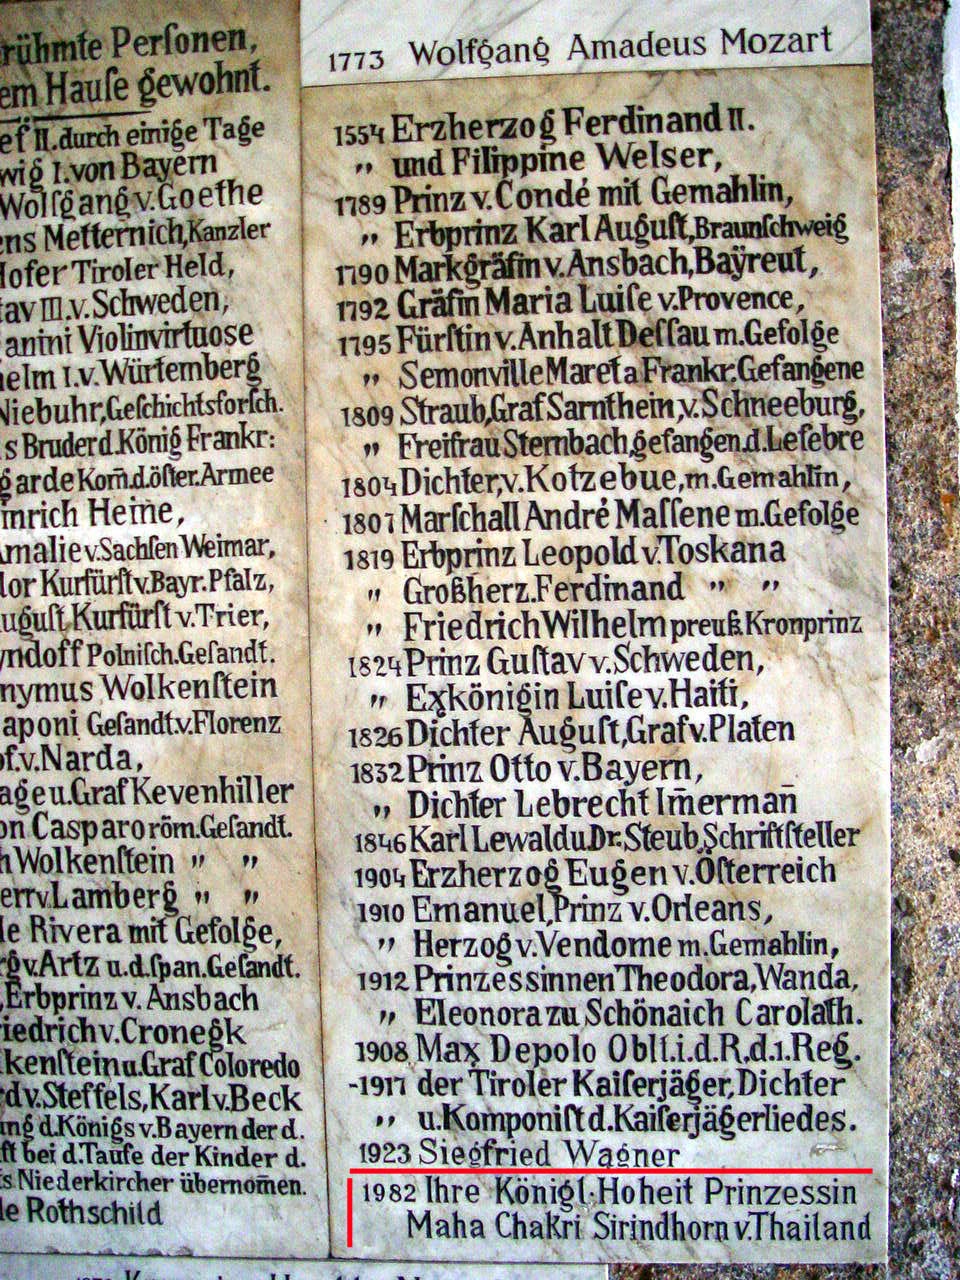 rühmte Perſonen,
em Hauſe gewohnt.
ef II. durch einige Tage
wig I. von Bayern
Wolfgang v. Goethe
ens Metternich, Kanzler
Hofer Tiroler Held,
tav III. v. Schweden,
anini Violinvirtuose
helm I. v. Würtemberg
Niebuhr, Geſchichtsforſch.
s Bruder d. König Frankr:
garde Kom̄. d. öſter. Armee
inrich Heine,
Amalie v. Sachſen Weimar,
dor Kurfürſt v. Bayr. Pfalz,
uguſt Kurfürſt v. Trier,
yndoff Polniſch. Geſandt.
onymus Wolkenſtein
aponi Geſandt. v. Florenz
of. v. Narda,
age u. Graf Kevenhiller
on Casparo röm. Geſandt.
h Wolkenſtein " "
err v. Lamberg " "
de Rivera mit Gefolge,
rg v. Artz u. d. ſpan. Geſandt.
, Erbprinz v. Ansbach
riedrich v. Cronegk
lkenſtein u. Graf Coloredo
rd v. Steffels, Karl v. Beck
ung d. Königs v. Bayern der d.
ft bei d. Taufe der Kinder d.
ts Niederkircher übernom̄en.
de Rothschild
1773 Wolfgang Amadeus Mozart
1554 Erzherzog Ferdinand II.
" und Filippine Welser,
1789 Prinz v. Condé mit Gemahlin,
" Erbprinz Karl Auguſt, Braunſchweig
1790 Markgräfin v. Ansbach, Baÿreut,
1792 Gräfin Maria Luiſe v. Provence,
1795 Fürſtin v. Anhalt Deſſau m. Gefolge
" Semonville Mareta Frankr. Gefangene
1809 Straub, Graf Sarnthein, v. Schneeburg,
" Freifrau Sternbach, gefangen. d. Lefebre
1804 Dichter, v. Kotzebue, m. Gemahlin,
1807 Marſchall André Maſſene m. Gefolge
1819 Erbprinz Leopold v. Toskana
" Großherz. Ferdinand " "
" Friedrich Wilhelm preuß. Kronprinz
1824 Prinz Guſtav v. Schweden,
" Exkönigin Luiſe v. Haiti,
1826 Dichter Auguſt, Graf v. Platen
1832 Prinz Otto v. Bayern,
" Dichter Lebrecht Im̄erman̄
1846 Karl Lewald u. Dr. Steub, Schriftſteller
1904 Erzherzog Eugen v. Öſterreich
1910 Emanuel, Prinz v. Orleans,
" Herzog v. Vendome m. Gemahlin,
1912 Prinzessinnen Theodora, Wanda,
" Eleonora zu Schönaich Carolath.
1908 Max Depolo Oblt. i. d. R, d. 1. Reg.
-1917 der Tiroler Kaiſerjäger, Dichter
" u. Komponiſt d. Kaiſerjägerliedes.
1923 Siegfried Wagner
1982 Ihre Königl. Hoheit Prinzessin
Maha Chakri Sirindhorn v. Thailand